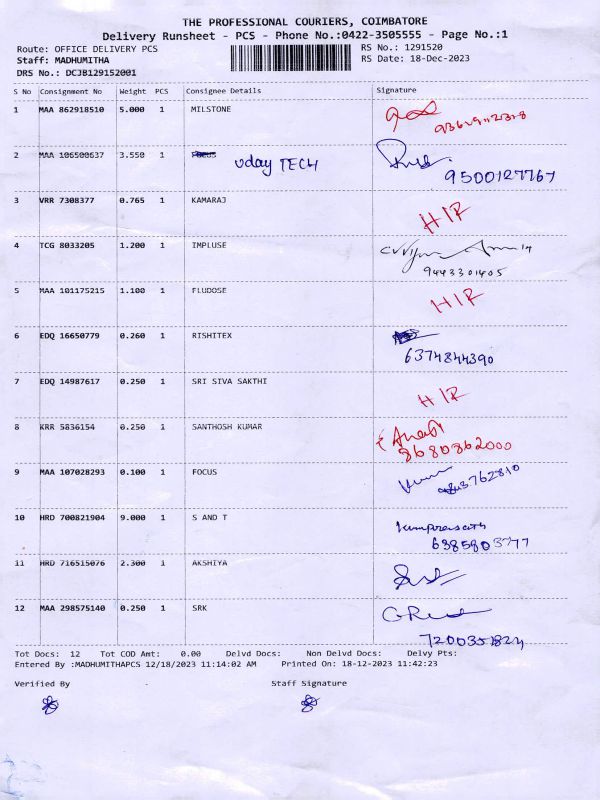 THE PROFESSIONAL COURIERS, COIMBATORE
Delivery Runsheet - PCS - Phone No.:0422-3505555 - Page No.:1
Route: OFFICE DELIVERY PCS RS No.: 1291520
Staff: MADHUMITHA RS Date: 18-Dec-2023
DRS No.: DCJB129152001
S No Consignment No Weight PCS Consignee Details Signature
1 MAA 862918510 5.000 1 MILSTONE
2 MAA 106500637 3.550 1 Uday TECH
9500127767
3 VRR 7308377 0.765 1 KAMARAJ
HIR
4 TCG 8033205 1.200 1 IMPLUSE
9443301405
5 MAA 101175215 1.100 1 FLUDOSE
HIR
6 EDQ 16650779 0.260 1 RISHITEX
6374844390
7 EDQ 14987617 0.250 1 SRI SIVA SAKTHI
HIR
8 KRR 5836154 0.250 1 SANTHOSH KUMAR
8680862000
9 MAA 107028293 0.100 1 FOCUS
10 HRD 700821904 9.000 1 S AND T
6385803777
11 HRD 716515076 2.300 1 AKSHIYA
12 MAA 298575140 0.250 1 SRK
7200351824
Tot Docs: 12 Tot COD Amt: 0.00 Delvd Docs: Non Delvd Docs: Delvy Pts:
Entered By :MADHUMITHAPCS 12/18/2023 11:14:02 AM Printed On: 18-12-2023 11:42:23
Verified By Staff Signature